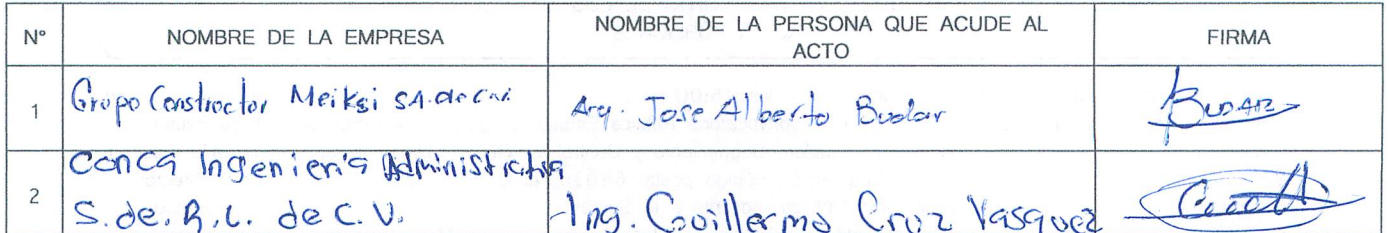 N° NOMBRE DE LA EMPRESA NOMBRE DE LA PERSONA QUE ACUDE AL ACTO FIRMA
1 Grupo Constructor Meiksi S.A. de C.V. Arq. Jose Alberto Budar BUDAR
2 Conca Ingeniería Administrativa
S. de. R.L. de C.V. Ing. Guillermo Cruz Vasquez